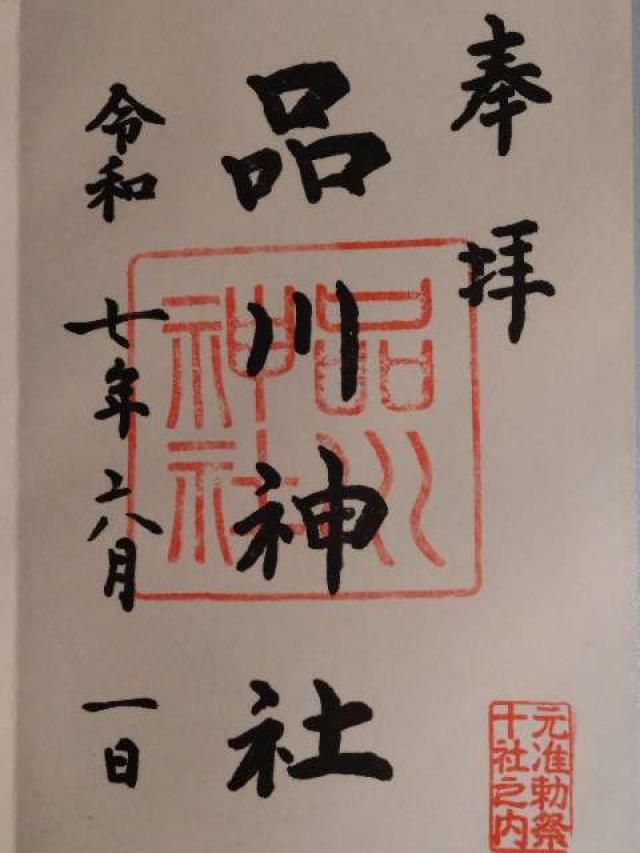 奉拝
品川神社
令和七年六月一日
品川神社
元准勅祭
十社之内